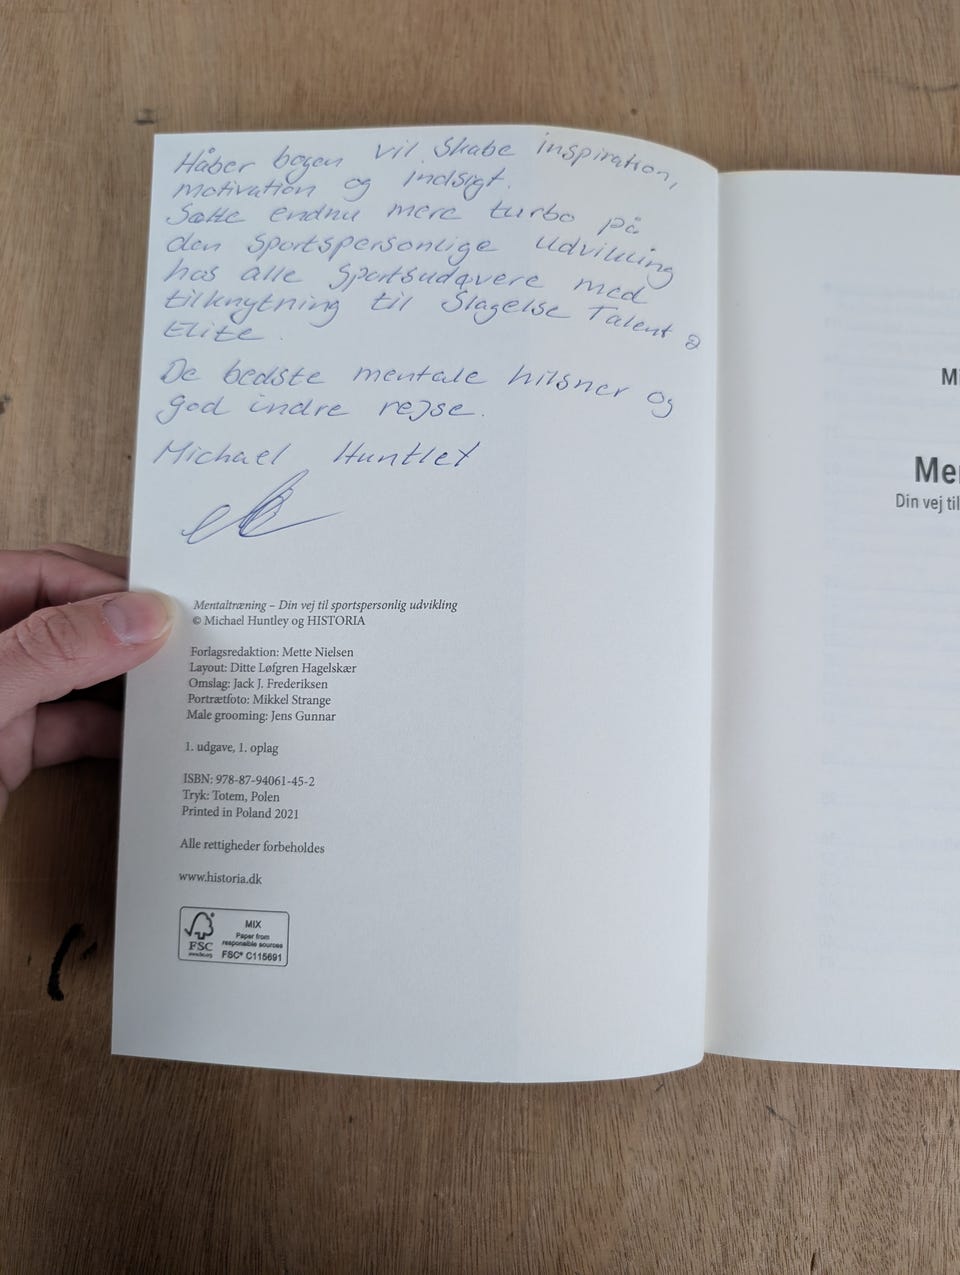 Håber bogen vil skabe inspiration,
motivation og indsigt.
Sætte endnu mere turbo på
den sportspersonlige udvikling
hos alle sportsudøvere med
tilknytning til Slagelse Talent &
Elite.
De bedste mentale hilsner og
god indre rejse.
Michael Huntley
Mentaltræning – Din vej til sportspersonlig udvikling
© Michael Huntley og HISTORIA
Forlagsredaktion: Mette Nielsen
Layout: Ditte Løfgren Hagelskær
Omslag: Jack J. Frederiksen
Portrætfoto: Mikkel Strange
Male grooming: Jens Gunnar
1. udgave, 1. oplag
ISBN: 978-87-94061-45-2
Tryk: Totem, Polen
Printed in Poland 2021
Alle rettigheder forbeholdes
www.historia.dk
FSC
www.fsc.org
MIX
Paper from
responsible sources
FSC® C115691
Mi
Men
Din vej til